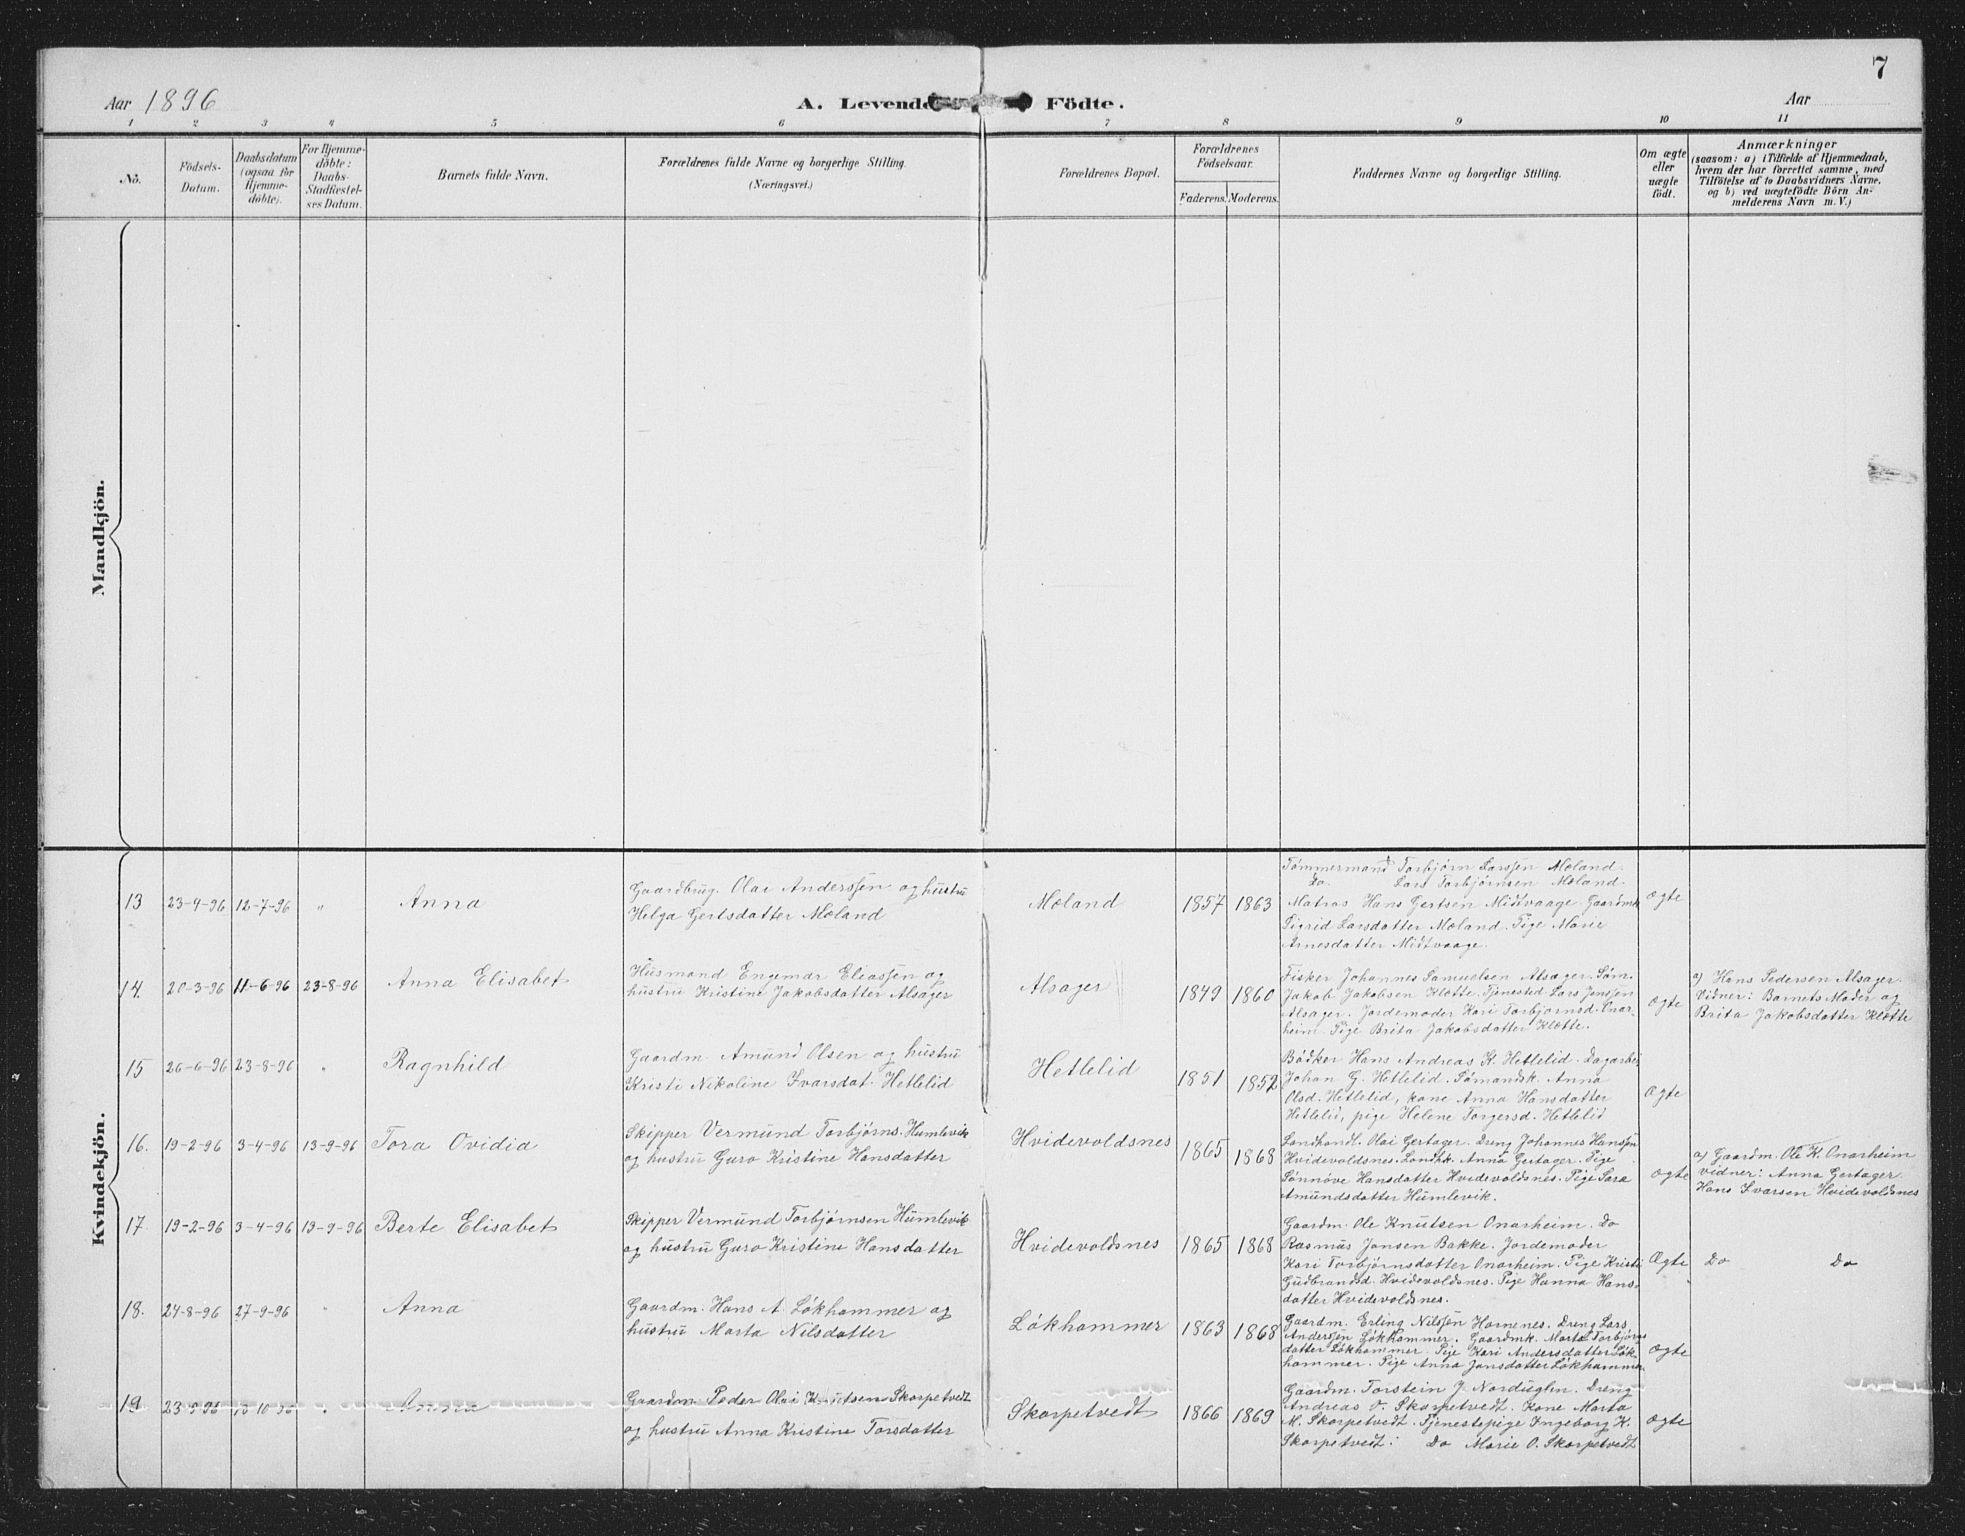 7
Aar 1896
A. Levende Födte.
Aar
1 2 3 4 5 6 7 8 9 10 11
No.
Födsels-
Datum.
Daabsdatum
(ogsaa for
Hjemme-
døbte).
For Hjemme-
døbte:
Daabs-
Stadfæstel-
ses Datum.
Barnets fulde Navn.
Forældrenes fulde Navne og borgerlige Stilling.
(Næringsvei.)
Forældrenes Bopæl.
Forældrenes
Födselsaar.
Faderens. Moderens.
Faddernes Navne og borgerlige Stilling.
Om ægte
eller
uægte
født.
Anmærkninger
(saasom: a) i Tilfælde af Hjemmedaab,
hvem der har forrettet samme, med
Tilföielse af to Daabsvidners Navne,
og b) ved uægtefödte Börn An-
melderens Navn m. V.)
Mandkjön.
Kvindekjön.
13 23-4-96 12-7-96 " Anna
Gaardbrug. Olai Anderssen og hustru
Helga Gertsdatter Moland
Moland 1857 1863
Tømmermand Torbjørn Larssen Moland.
Do. Lars Torbjørnsen Moland.
Matros Hans Gertsen Midtvaage Gaardmk
Sigrid Larsdatter Moland. Pige Marie
Arnesdatter Midtvaage.
Ægte
14. 20-3-96 11-6-96 23-8-96 Anna Elisabet
Husmand Engemar Eliassen og
hustru Kristine Jakobsdatter Alsager
Alsager 1849 1860
Fisker Johannes Samuelsen Alsager. Søm.
Jakob Jakobsen Kløtte. Tjenested Lars Jenssen
Alsager. Jordemoder Kari Torbjørnsd. Onar-
heim. Pige Brita Jakobsdatter Kløtte.
Ægte
a) Hans Pedersen Alsager.
Vidner: Barnets Moder og
Brita Jakobsdatter Kløtte
15 26-6-96 23-8-96 " Ragnhild
Gaardm. Amund Olsen og hustru
Kristi Nikoline Ivarsdat. Hetlelid
Hetlelid 1851 1852
Bødker Hans Andreas K. Hetlelid. Dagarbei.
Johan G. Hetlelid. Sømandsk. Anna
Olsd. Hetlelid, kone Anna Hansdatter
Hetlelid, pige Helene Torgersd. Hetlelid
Ægte
16. 19-2-96 3-4-96 13-9-96 Tora Ovidia
Skipper Vermund Torbjørns. Humlevik
og hustru Guro Kristine Hansdatter
Hvidevoldsnes 1865 1868
Landhandl. Olai Gertager. Dreng Johannes Hanssen
Hvidevoldsnes. Landhk. Anna Gertager. Pige
Sønnøve Hansdatter Hvidevoldsnes. Pige Sara
Amundsdatter Humlevik.
Ægte
a) Gaardm. Ole K. Onarheim
vidner: Anna Gertager.
Hans Ivarsen Hvidevoldsnes
17. 19-2-96 3-4-96 13-9-96 Berte Elisabet
Skipper Vermund Torbjørnsen Humlevik
og hustru Guro Kristine Hansdatter
Hvidevoldsnes 1865 1868
Gaardm. Ole Knutsen Onarheim. Do
Rasmus Jansen Bakke. Jordemoder
Kari Torbjørnsdatter Onarheim. Pige Kristi
Gudbrandsd. Hvidevoldsnes. Pige Hanna Hans-
datter Hvidevoldsnes.
Ægte
Do Do
18. 24-8-96 27-9-96 " Anna
Gaardm. Hans A. Løkhammer og
hustru Marta Nilsdatter
Løkhammer 1863 1868
Gaardm. Erling Nilssen Hornenes. Dreng Lars
Anderssen Løkhammer. Gaardmk. Marta Torbjørns
datter Løkhammer. Pige Kari Andersdatter Løk-
hammer. Pige Anna Jansdatter Løkhammer
Ægte
19 23-9-96 18-10-96 " Anna
Gaardm. Peder Olai Knutsen Skorpetvedt
og hustru Anna Kristine Torsdatter
Skorpetvedt 1866 1869
Gaardm. Torstein J. Norduglen. Dreng
Andreas O. Skorpetvedt. Kone Marta
M. Skorpetvedt. Tjenestepige Ingeborg K.
Skorpetvedt. Do Marie O. Skorpetvedt
Ægte